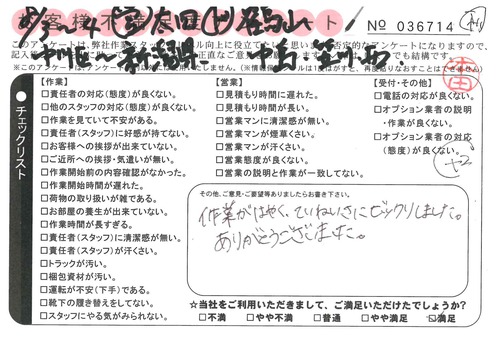 お客様不満足アンケート
№ 036714
このアンケートは、弊社作業スタッフ
向上に役立てたい
※このアンケートは
再度貼りなおすことはできません
チェックリスト
【作業】
□責任者の対応(態度)が良くない。
□他のスタッフの対応(態度)が良くない。
□作業を見ていて不安がある。
□責任者(スタッフ)に好感が持てない。
□お客様への挨拶が出来ていない。
□ご近所への挨拶・気遣いが無い。
□作業開始前の内容確認がなかった。
□作業開始時間が遅れた。
□荷物の取り扱いが雑である。
□お部屋の養生が出来ていない。
□作業時間が長すぎる。
□責任者(スタッフ)に清潔感が無い。
□責任者(スタッフ)が汗くさい。
□トラックが汚い。
□梱包資材が汚い。
□運転が不安(下手)である。
□靴下の履き替えをしてない。
□スタッフにやる気がみられない。
【営業】
□見積もり時間に遅れた。
□見積もり時間が長い。
□営業マンに清潔感が無い。
□営業マンが煙草くさい。
□営業マンが汗くさい。
□営業態度が良くない。
□営業の説明と作業が一致してない。
【受付・その他】
□電話の対応が良くない。
□オプション業者の説明
・作業が良くない。
□オプション業者の対応
(態度)が良くない。
その他、ご意見・ご要望等ありましたらお書き下さい。
作業がはやく、ていねいさにビックリしました。
ありがとうございました。
☆当社をご利用いただきまして、ご満足いただけたでしょうか?
□不満 □やや不満 □普通 □やや満足 ☑満足